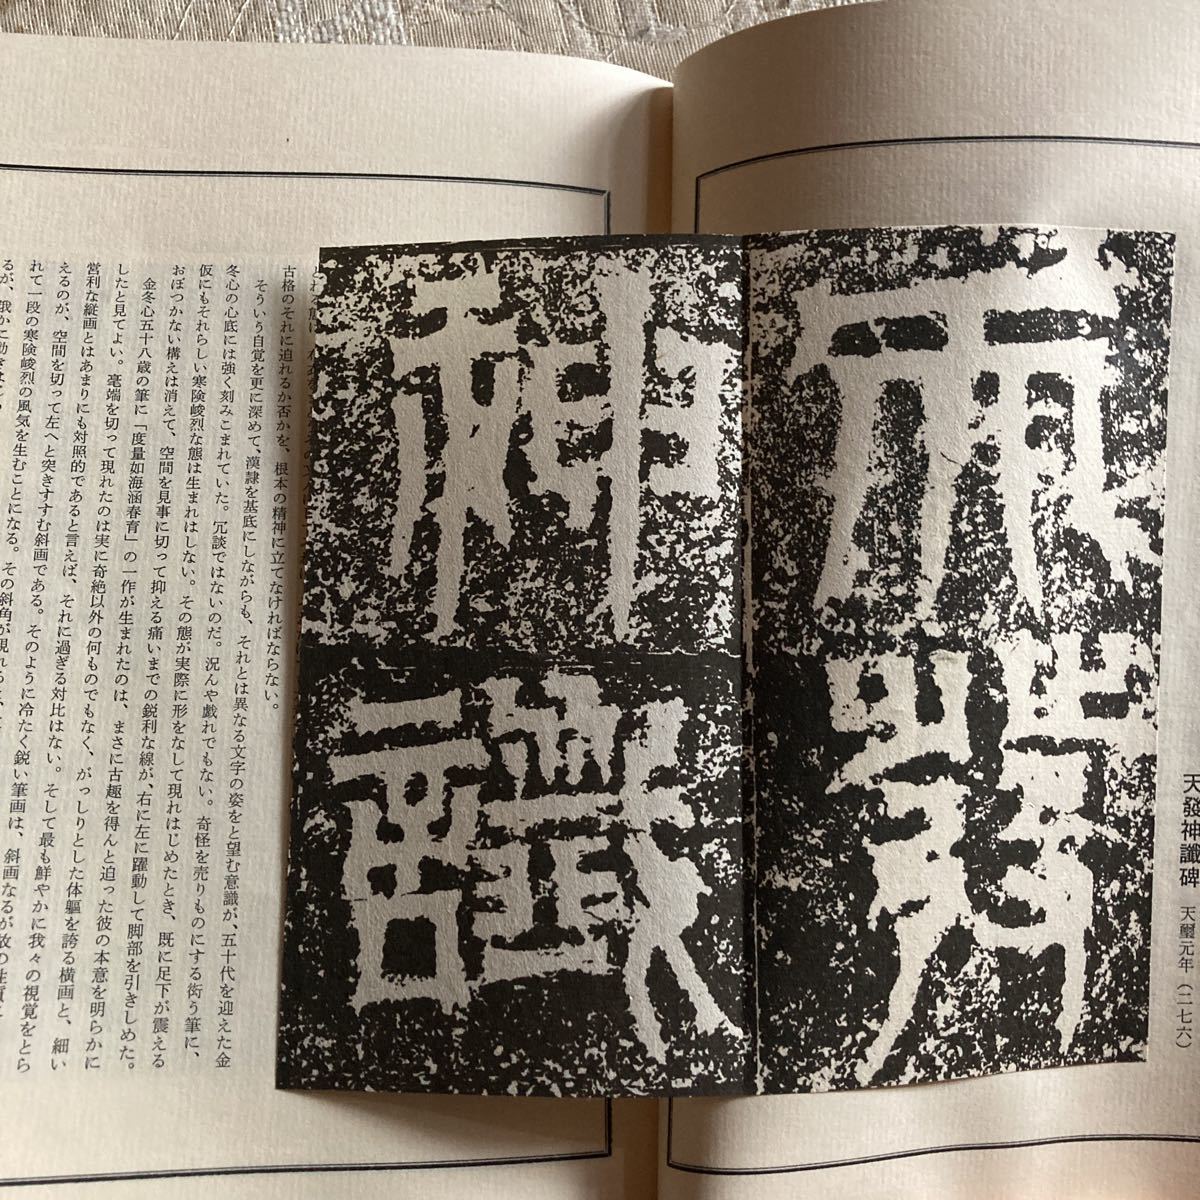 天發神讖碑 天璽元年(二七六)
天發
神讖
古格のそれに迫れるか否かを、根本の精神に立てなければならない。
そういう自覚を更に深めて、漢隷を基底にしながらも、それとは異なる文字の姿をと望む意識が、五十代を迎えた金
冬心の心底には強く刻みこまれていた。冗談ではないのだ。況んや戯れでもない。奇怪を売りものにする衒う筆に、
仮にもそれらしい寒険峻烈な態は生まれはしない。その態が実際に形をなして現れはじめたとき、既に足下が震える
おぼつかない構えは消えて、空間を見事に切って抑える痛いまでの鋭利な線が、右に左に躍動して脚部を引きしめた。
金冬心五十八歳の筆に「度量如海涵春育」の一作が生まれたのは、まさに古趣を得んと迫った彼の本意を明らかに
したと見てよい。毫端を切って現れたのは実に奇絶以外の何ものでもなく、がっしりとした体軀を誇る横画と、細い
営利な縦画とはあまりにも対照的であると言えば、それに過ぎる対比はない。そして最も鮮やかに我々の視覚をとら
えるのが、空間を切って左へと突きすすむ斜画である。そのように冷たく鋭い筆画は、斜画なるが故の性質
れて一段の寒険峻烈の風気を生むことになる。その斜角が現れる
るが、